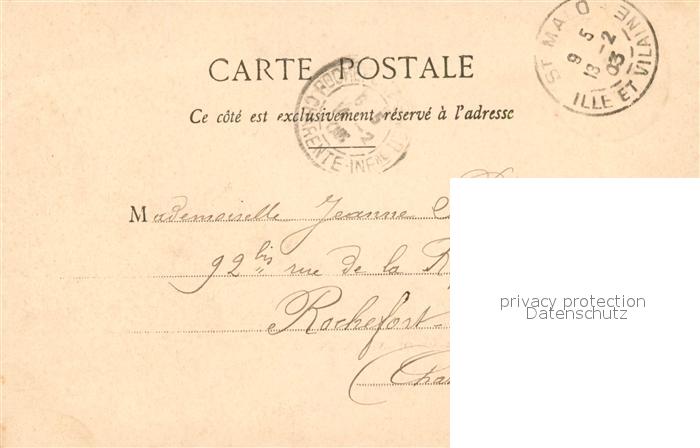 CARTE POSTALE
Ce côté est exclusivement réservé à l'adresse
ST MALO
9 5
13 -2
03
ILLE ET VILAINE
CHARENTE-INFRE
Mademoiselle Jeanne
92 bis rue de la
Rochefort-
(Cha
privacy protection
Datenschutz